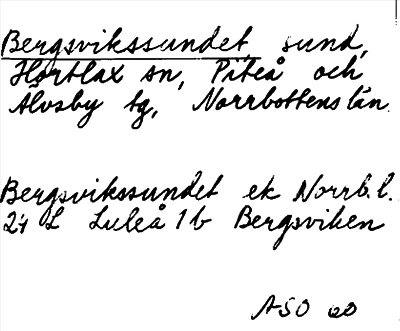 Bergsvikssundet, sund,
Hortlax sn, Piteå och
Älvsby tg, Norrbottens län.
Bergsvikssundet ek Norrb. l.
24 L Luleå 1 b Bergsviken
ASO 60